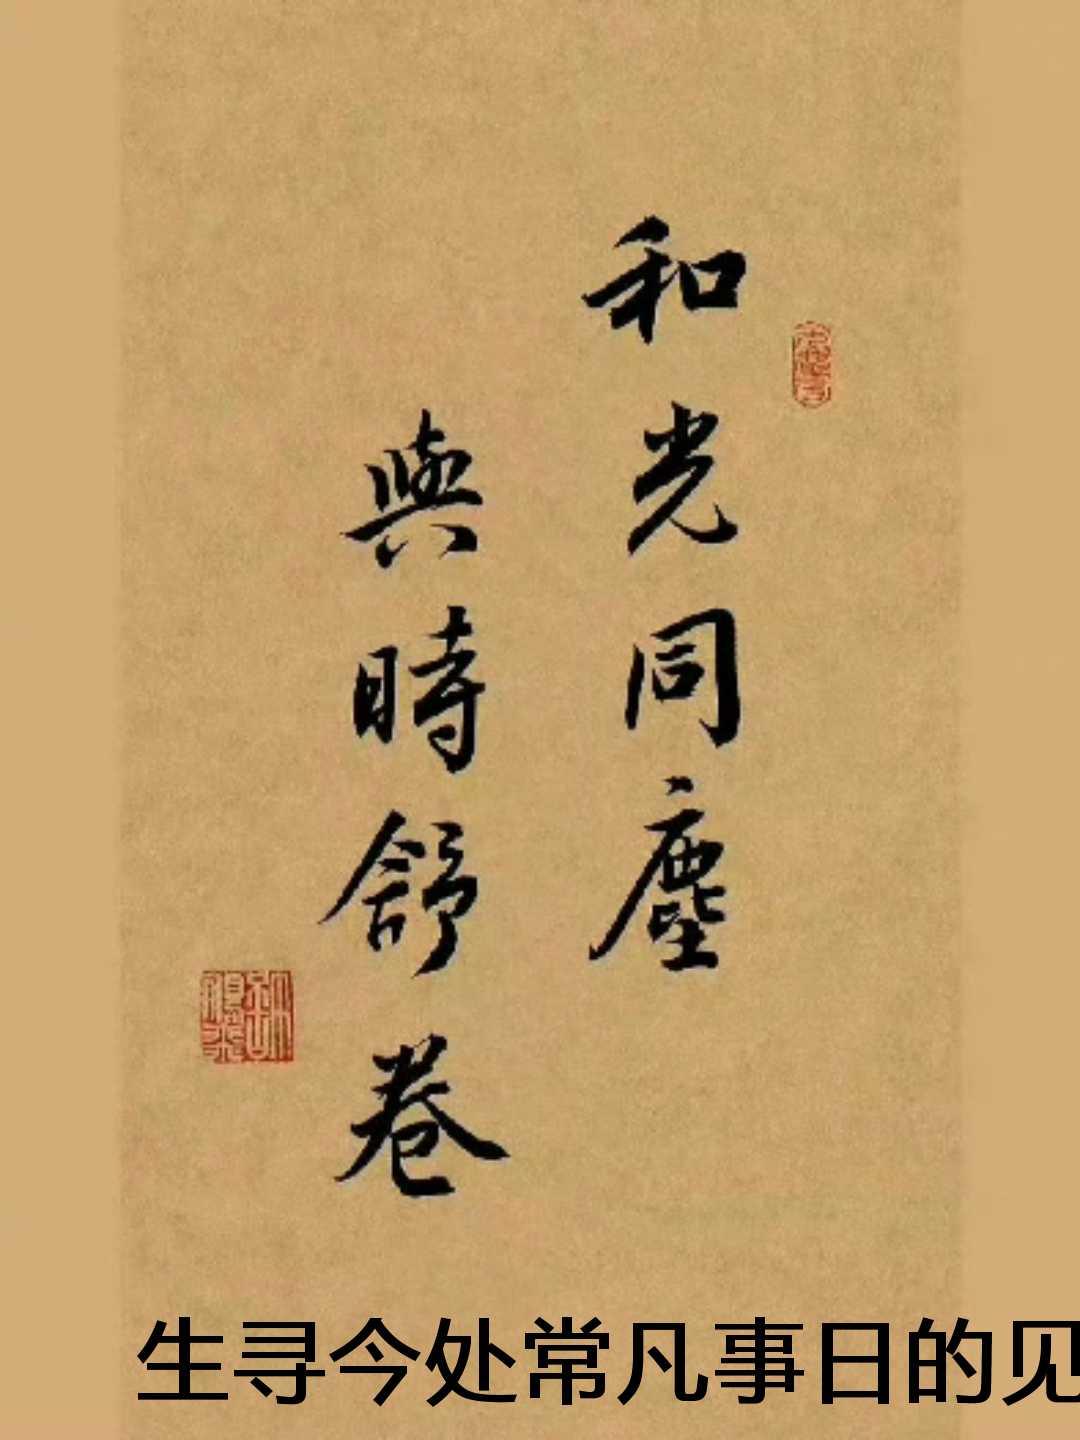 和光同塵
與時舒卷
生寻今处常凡事日的见